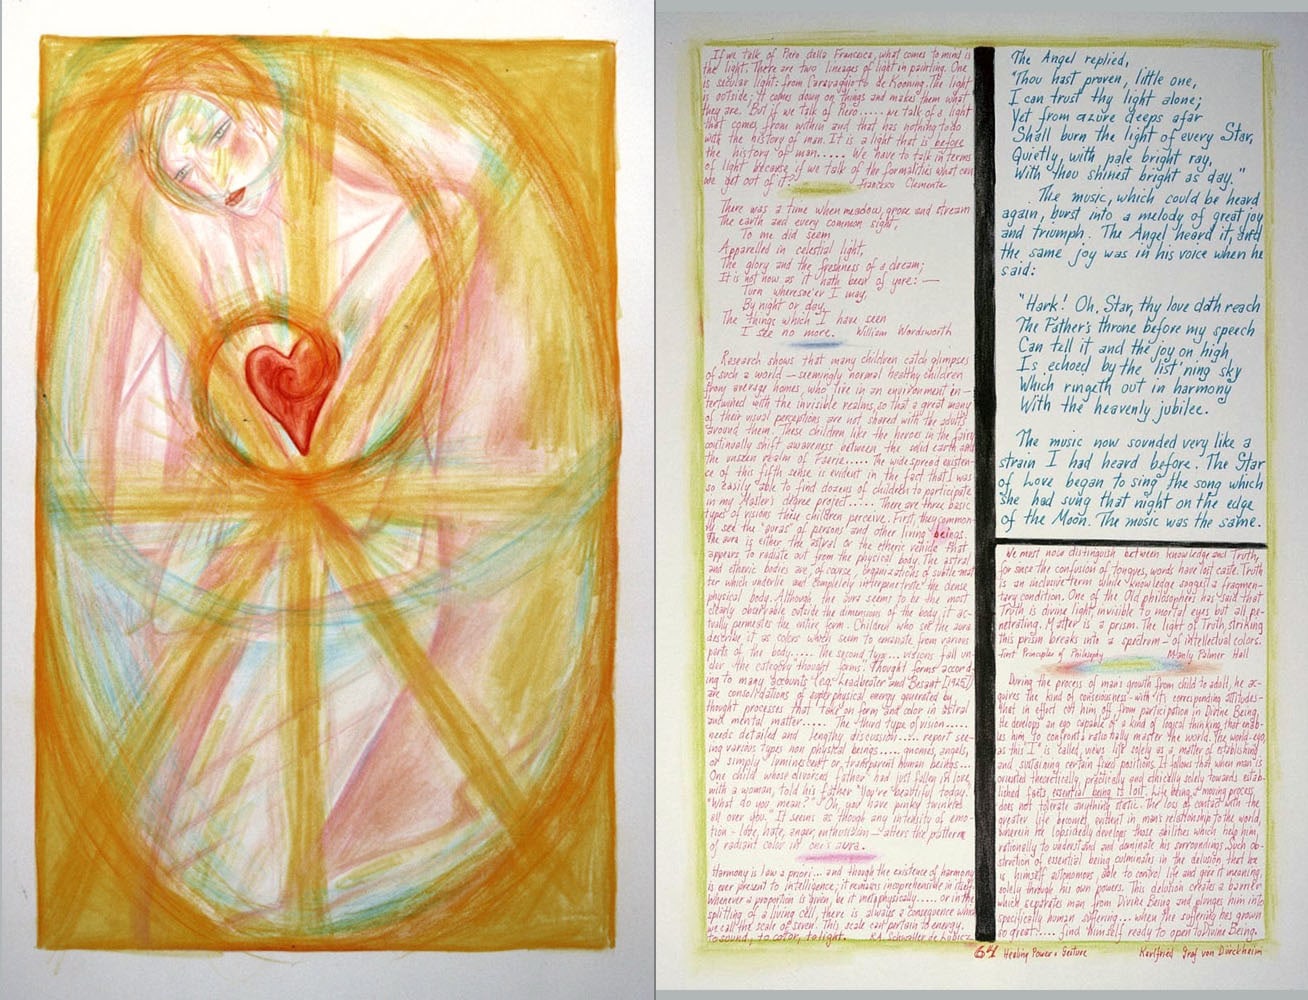 If we talk of Piero della Francesca, what comes to mind is
the light. There are two lineages of light in painting. One
is secular light: from Caravaggio to de Kooning. The light
is outside; it comes down on things and makes them what
they are. But if we talk of Piero..... we talk of a light
that comes from within and that has nothing to do
with the history of man. It is a light that is before
the history of man..... We have to talk in terms
of light because if we talk of the formalities what can
we get out of it? Francesco Clemente
There was a time when meadow, grove and stream
The earth and every common sight,
To me did seem
Apparelled in celestial light,
The glory and the freshness of a dream;
It is not now as it hath been of yore: —
Turn wheresoe'er I may,
By night or day,
The things which I have seen
I see no more. William Wordsworth
Research shows that many children catch glimpses
of such a world — seemingly normal healthy children
from average homes, who live in an environment en-
tertwined with the invisible realms, so that a great many
of their visual perceptions are not shared with the adults
around them. These children like the heroes in the fairy
continually shift awareness between the solid earth and
the unseen realm of Faerie..... The widespread existen-
ce of this fifth sense is evident in the fact that I was
so easily able to find dozens of children to participate
in my Master's degree project..... There are three basic
types of visions these children perceive. First, they common-
ly see the "auras" of persons and other living beings.
The aura is either the astral or the etheric vehicle that
appears to radiate out from the physical body. The astral
and etheric bodies are, of course, organizations of subtle mat-
ter which underlie and completely interpenetrate the dense
physical body. Although the aura seems to be the most
clearly observable outside the dimensions of the body, it ac-
tually permeates the entire form. Children who see the aura
describe it as colors which seem to emanate from various
parts of the body..... The second type... visions fall un-
der the category "thought forms". Thought forms accord-
ing to many accounts (e.g. Leadbeater and Besant [1925])
are consolidations of superphysical energy generated by
thought processes that take on form and color in astral
and mental matter..... The third type of vision.....
needs detailed and lengthy discussion..... report see-
ing various types non physical beings..... gnomes, angels,
or simply luminescent or transparent human beings...
One child whose divorced father had just fallen in love
with a woman, told his father "You're beautiful today."
"What do you mean?" "Oh, you have pinky twinkles
all over you." It seems as though any intensity of emo-
tion - love, hate, anger, enthusiasm - alters the pattern
of radiant color in one's aura.
Harmony is law a priori... and though the existence of harmony
is ever present to intelligence; it remains incomprehensible in itself.
Whenever a proportion is given, be it metaphysically..... or in the
splitting of a living cell, there is always a consequence which
we call the scale of seven. This scale can pertain to energy,
to sound, to color, to light. R.A. Schwaller de Lubicz
The Angel replied,
"Thou hast proven, little one,
I can trust thy light alone;
Yet from azure deeps afar
Shall burn the light of every Star,
Quietly, with pale bright ray,
With thou shinest bright as day."
The music, which could be heard
again, burst into a melody of great joy
and triumph. The Angel heard it, and
the same joy was in his voice when he
said:
"Hark! Oh, Star, thy love doth reach
The Father's throne before my speech
Can tell it and the joy on high
Is echoed by the list'ning sky
Which ringeth out in harmony
With the heavenly jubilee.
The music now sounded very like a
strain I had heard before. The Star
of Love began to sing the song which
she had sung that night on the edge
of the Moon. The music was the same.
We must now distinguish between knowledge and Truth,
for since the confusion of tongues, words have lost caste. Truth
is an inclusive term while knowledge suggest a fragmen-
tary condition. One of the Old philosophers has said that
Truth is divine light invisible to mortal eyes but all pe-
netrating. Matter is a prism. The light of Truth striking
this prism breaks into a spectrum - of intellectual colors.
First Principles of Philosophy Manly Palmer Hall
During the process of man's growth from child to adult, he ac-
quires the kind of consciousness - with its corresponding attitudes -
that in effect cut him off from participation in Divine Being.
He develops an ego capable of a kind of logical thinking that enab-
les him to confront & rationally master the world. The world-ego,
as this "I" is called, views life solely as a matter of establishing
and sustaining certain fixed positions. It follows that when man is
oriented theoretically, practically and ethically solely towards estab-
lished facts essential being is lost. Life being a moving process,
does not tolerate anything static. The loss of contact with the
greater life becomes evident in man's relationship to the world,
wherein he lopsidedly develops those abilities which help him,
rationally to understand and dominate his surroundings. Such ob-
struction of essential being culminates in the delusion that he
is himself autonomous, able to control life and give it meaning
solely through his own powers. This delusion creates a barrier
which separates man from Divine Being and plunges him into
specifically human suffering... when the suffering has grown
so great..... find himself ready to open to Divine Being.
64 Healing Power & Gesture Karlfried Graf von Dürckheim